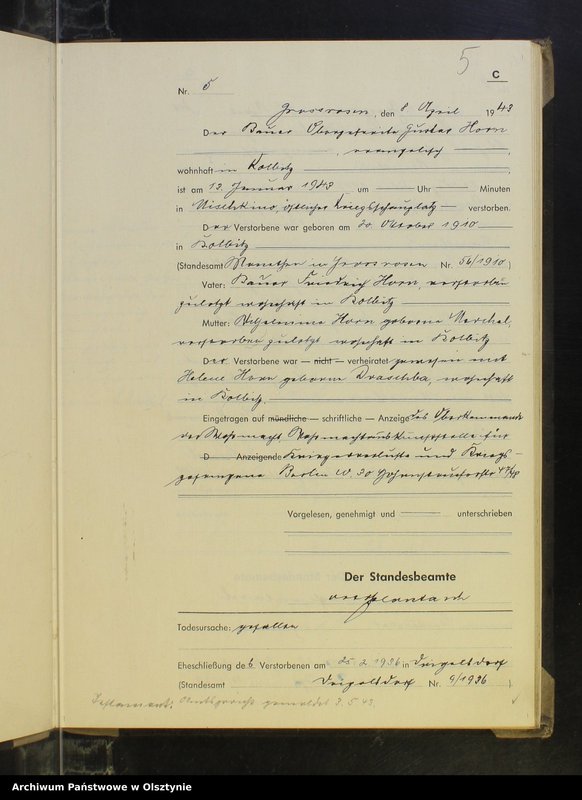 5
C
Nr. 5
Grossrosen, den 8 April 1943
Der Bauer Obergefreite Gustav Horn
, evangelisch ,
wohnhaft in Kolbitz ,
ist am 12. Januar 1943 um Uhr Minuten
in östlicher Kriegsschauplatz verstorben.
Der Verstorbene war geboren am 20. Oktober 1910
in Kolbitz
(Standesamt Monethen in Grossrosen Nr. 56/1910)
Vater: Bauer Friedrich Horn, verstorben
zuletzt wohnhaft in Kolbitz
Mutter: Wilhelmine Horn geborene
verstorben zuletzt wohnhaft in Kolbitz
Der Verstorbene war — nicht — verheiratet gewesen mit
Helene Horn geborene Draschba, wohnhaft
in Kolbitz.
Eingetragen auf mündliche — schriftliche — Anzeige des Oberkommando
der Wehrmacht Wehrmachtauskunftstelle für
D Anzeigende Kriegerverluste und Kriegs-
gefangene Berlin W. 30 Hohenstaufenstr 47/48
Vorgelesen, genehmigt und unterschrieben
Der Standesbeamte
Todesursache: gefallen
Eheschließung des Verstorbenen am 25. 2 1936 in Drigelsdorf
(Standesamt Drigelsdorf Nr. 9/1936 )
Testament: Amtsgericht gemeldet 3. 5. 43.
Archiwum Państwowe w Olsztynie